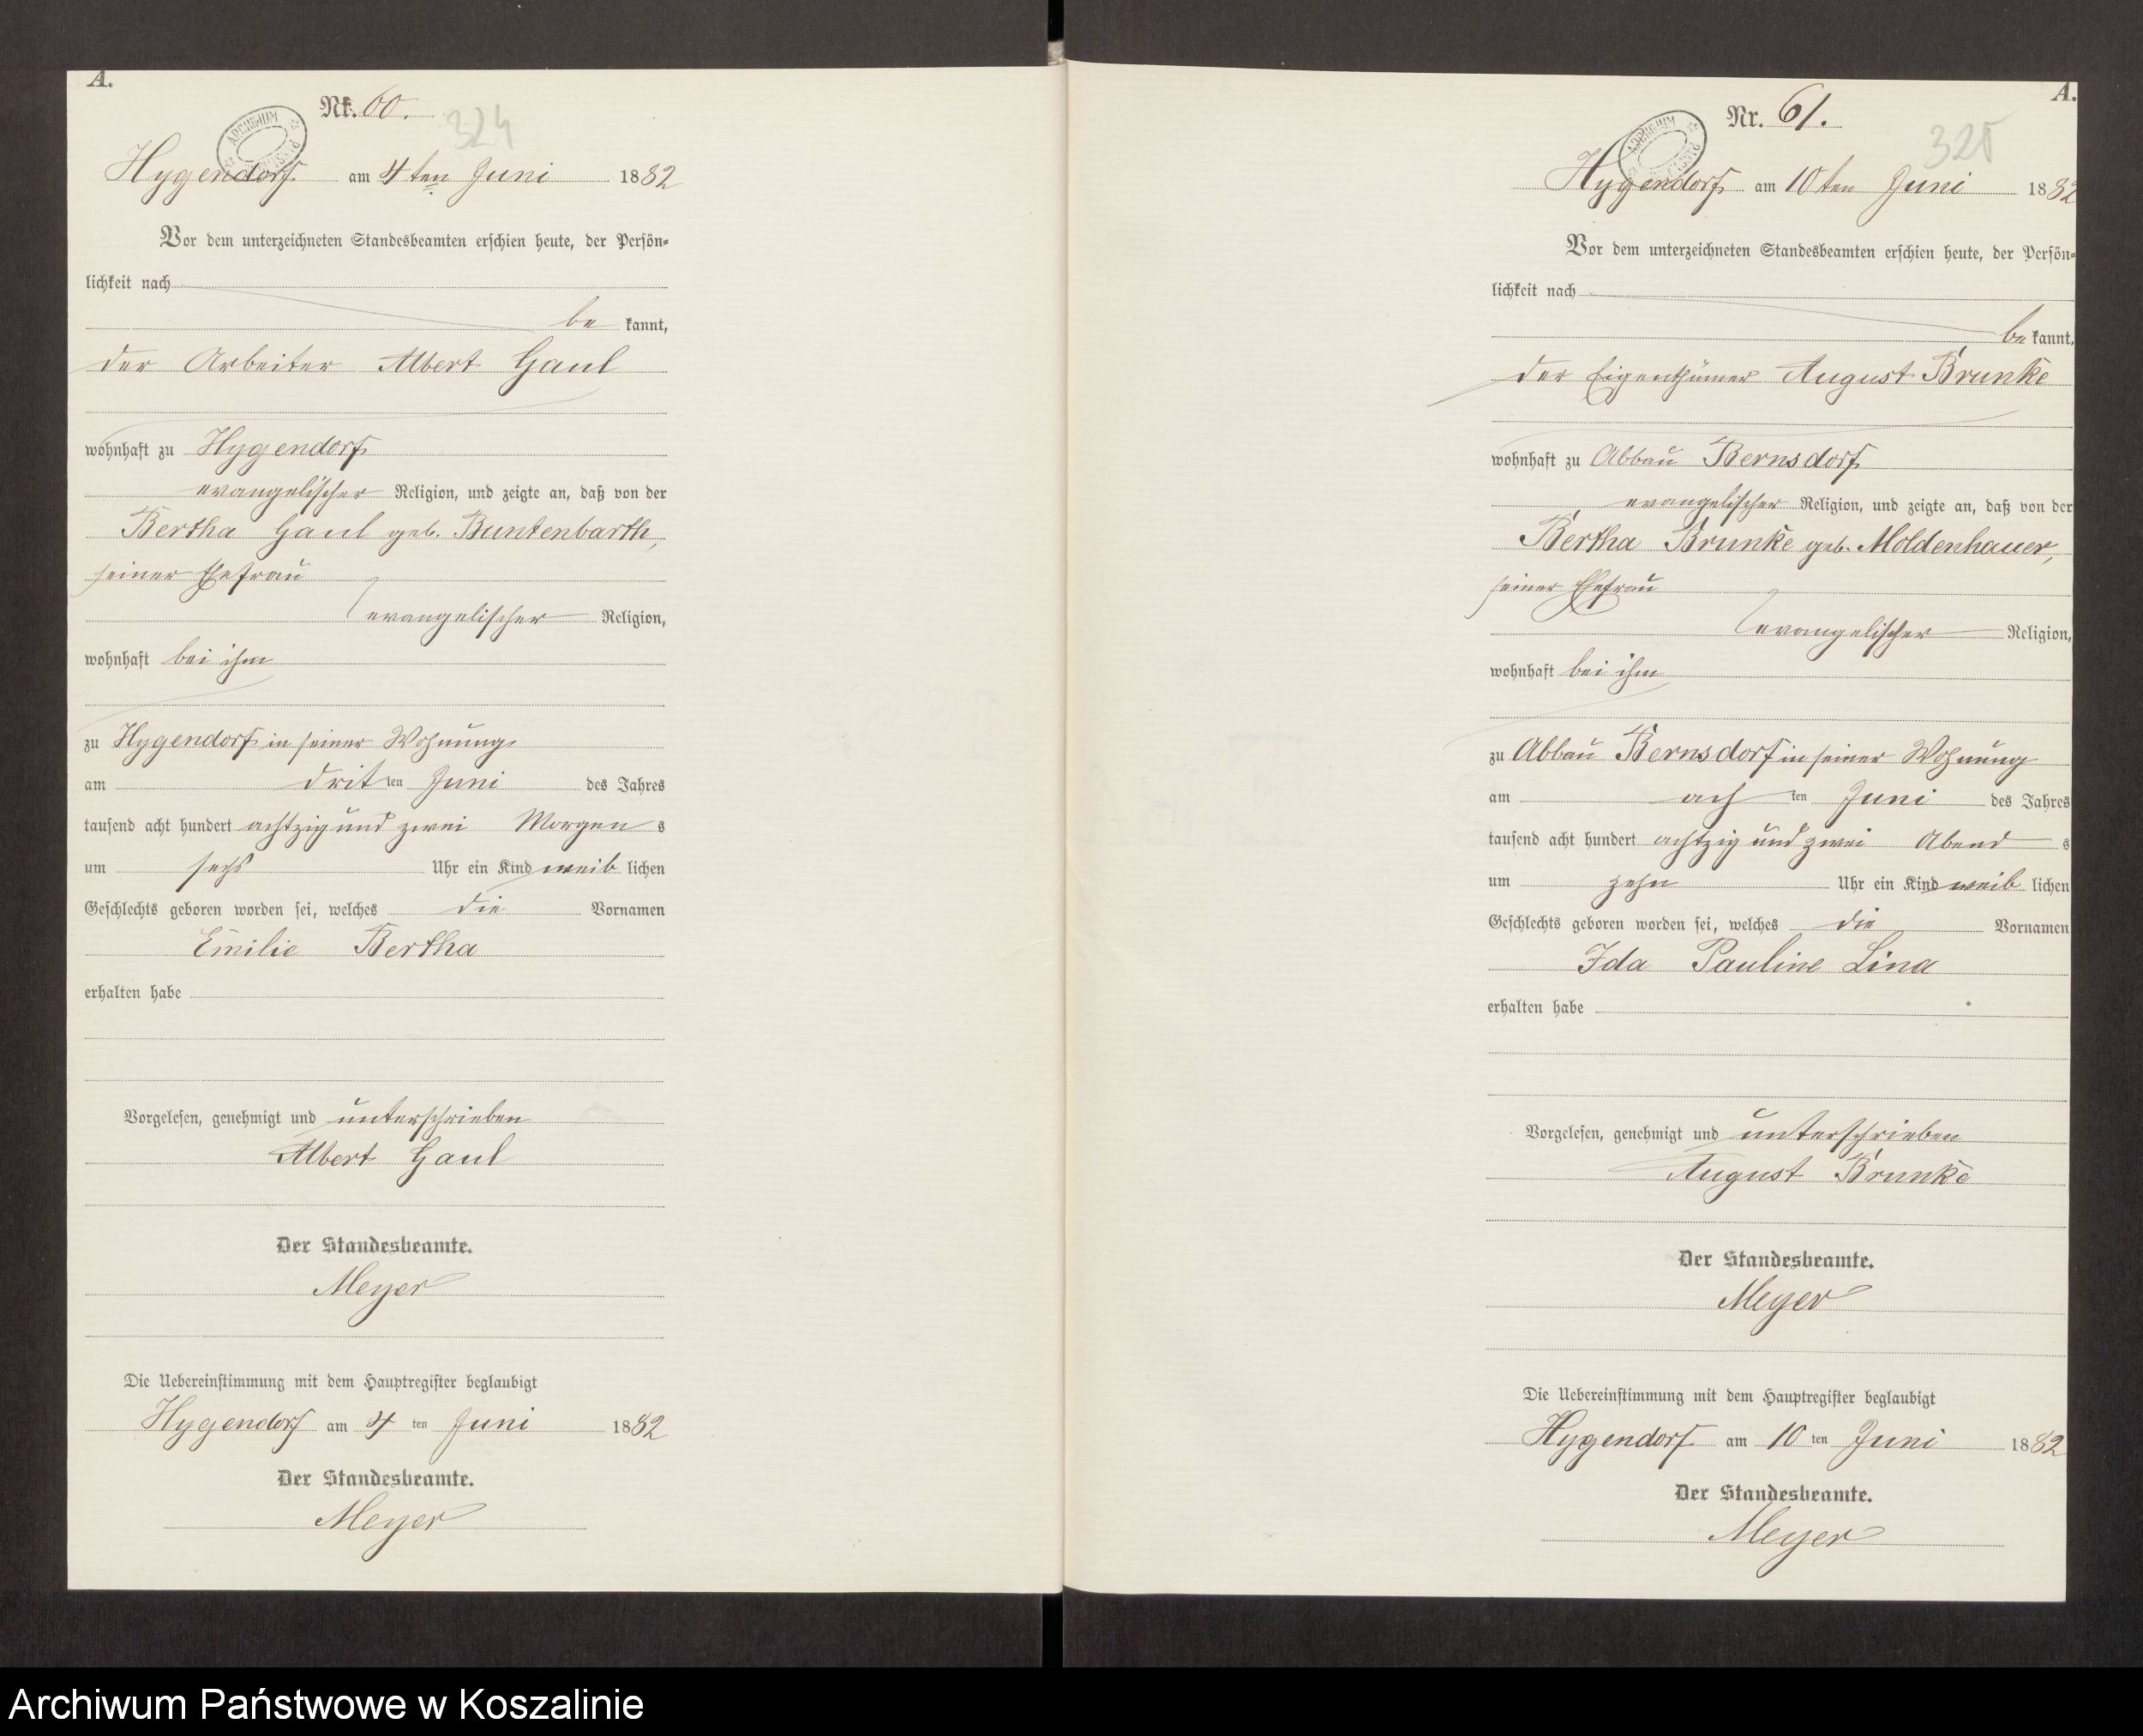 A.
Nr. 60.
324
Hygendorf am 4ten Juni 1882
Vor dem unterzeichneten Standesbeamten erschien heute, der Persön-
lichkeit nach
be kannt,
der Arbeiter Albert Gaul
wohnhaft zu Hygendorf
evangelischer Religion, und zeigte an, daß von der
Bertha Gaul geb. Buntenbarth,
seiner Ehefrau
evangelischer Religion,
wohnhaft bei ihm
zu Hygendorf in seiner Wohnung
am drit ten Juni des Jahres
tausend acht hundert achtzig und zwei Morgen s
um sechs Uhr ein Kind weib lichen
Geschlechts geboren worden sei, welches die Vornamen
Emilie Bertha
erhalten habe
Vorgelesen, genehmigt und unterschrieben
Albert Gaul
Der Standesbeamte.
Meyer
Die Uebereinstimmung mit dem Hauptregister beglaubigt
Hygendorf am 4 ten Juni 1882
Der Standesbeamte.
Meyer
A.
Nr. 61.
325
Hygendorf am 10ten Juni 1882
Vor dem unterzeichneten Standesbeamten erschien heute, der Persön-
lichkeit nach
be kannt,
der Eigenthümer August Brunke
wohnhaft zu Abbau Bernsdorf
evangelischer Religion, und zeigte an, daß von der
Bertha Brunke geb. Moldenhauer,
seiner Ehefrau
evangelischer Religion,
wohnhaft bei ihm
zu Abbau Bernsdorf in seiner Wohnung
am ach ten Juni des Jahres
tausend acht hundert achtzig und zwei Abend s
um zehn Uhr ein Kind weib lichen
Geschlechts geboren worden sei, welches die Vornamen
Ida Pauline Lina
erhalten habe
Vorgelesen, genehmigt und unterschrieben
August Brunke
Der Standesbeamte.
Meyer
Die Uebereinstimmung mit dem Hauptregister beglaubigt
Hygendorf am 10 ten Juni 1882
Der Standesbeamte.
Meyer
Archiwum Państwowe w Koszalinie